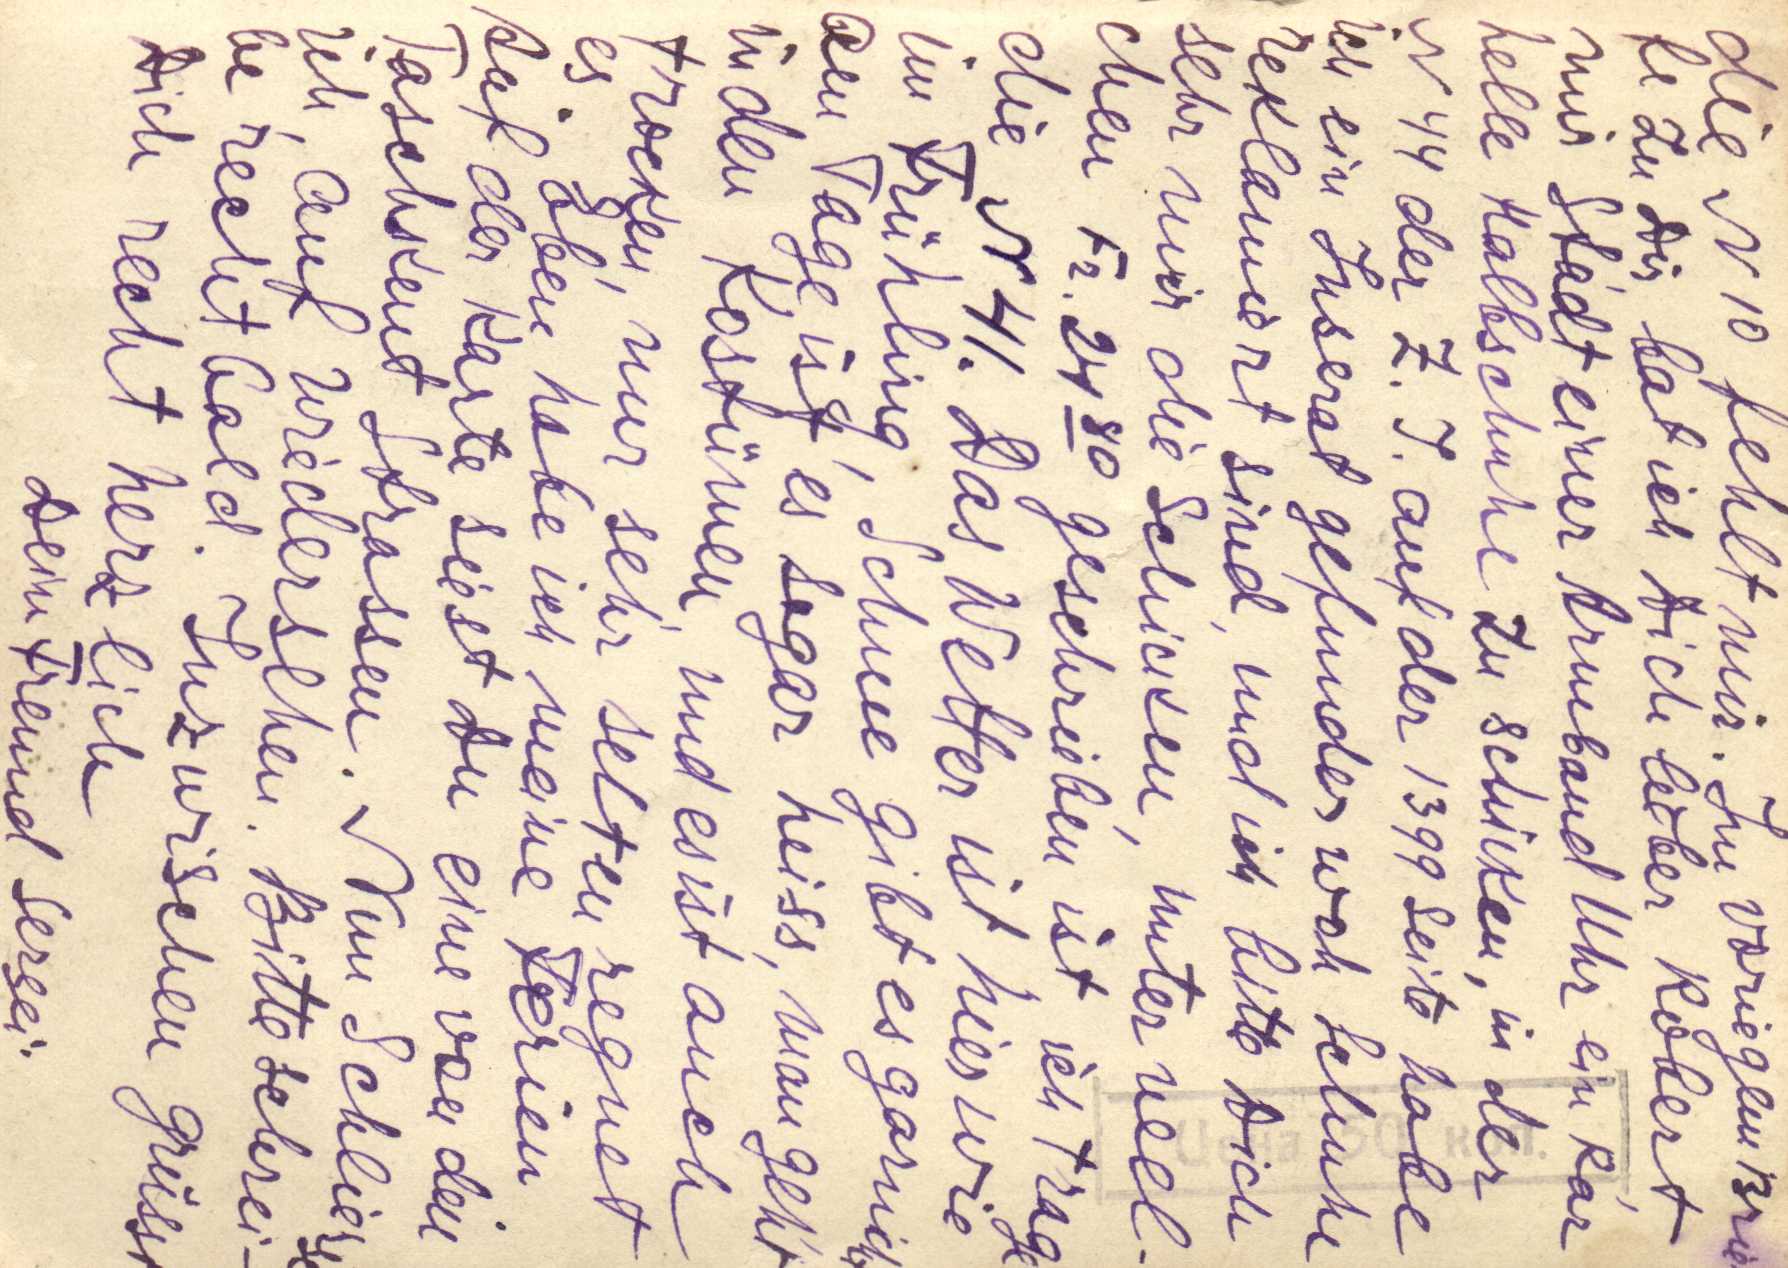 die N 10 fehlt mir. Im vorigen Brie
fe zu Dir bat ich Dich lieber Robert
mir Stadt einer Armband Uhr ein Par
helle Halbschuhe zu schiken, in der
N 44 der Z. I. auf der 1399 Seite habe
ich ein Inserat gefunden woh Schuhe
reklamiert sind, und ich bitte Dich
sehr mir die Schicken, unter
chen Fr. 24 80 geschrieben ist ich trage
die N 41. Das Wetter ist hier wie
im Frühling, Schnee gibt es garnicht
am Tage ist es sogar heiss, man geht
in den Kostümen und es ist auch
trocken, nur sehr selten regnet
es. Eben habe ich meine Ferien
Auf der Karte siest du eine von den
Taschkent Strassen. Nun Schliesse
ich, auf Wiedersehen. Bitte schrei-
be recht bald. Inzwischen grüsst
Dich recht herzlich
Dein Freund Sergei.
Цена 50 коп.